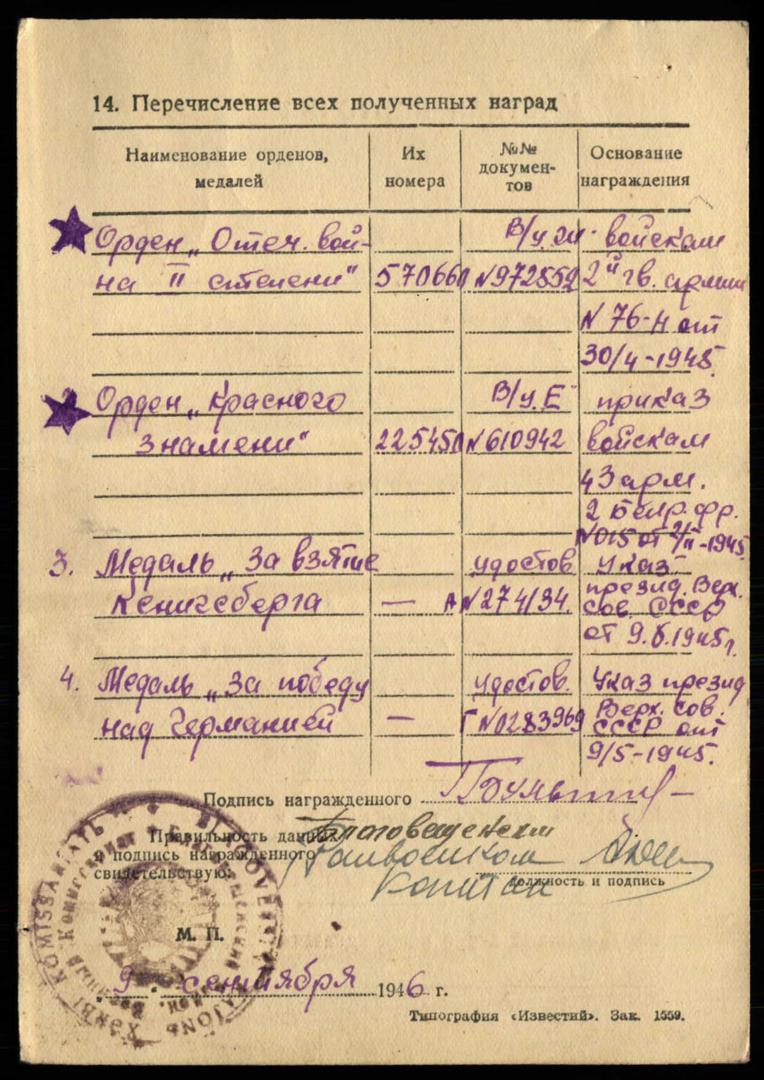 14. Перечисление всех полученных наград
Наименование орденов,
медалей
Их
номера
№№
докумен-
тов
Основание
награждения
Орден „Отеч. вой-
на II степени"
570660
В/у. М
N972552
войскам
2й гв. армии
N 76-Н от
30/4-1945.
Орден „Красного
Знамени"
225450
В/у. Е
N610942
приказ
войскам
43 арм.
2 белр. фр.
N015 от
II-1945
3. Медаль „За взятие
Кенигсберга
—
удостов
А N274134.
Указ
презид. Верх.
сов. СССР
от 9.6.1945г.
4. Медаль „За победу
над Германией
—
удостов.
Г N0283969
Указ презид
Верх. сов.
СССР от
9/5-1945.
Подпись награжденного
Правильность данных
и подпись награжденного
свидетельствую:
Благовещенский
Райвоенком
Капитан
должность и подпись
М. П.
9 сентября 1946 г.
Типография «Известий». Зак. 1559.